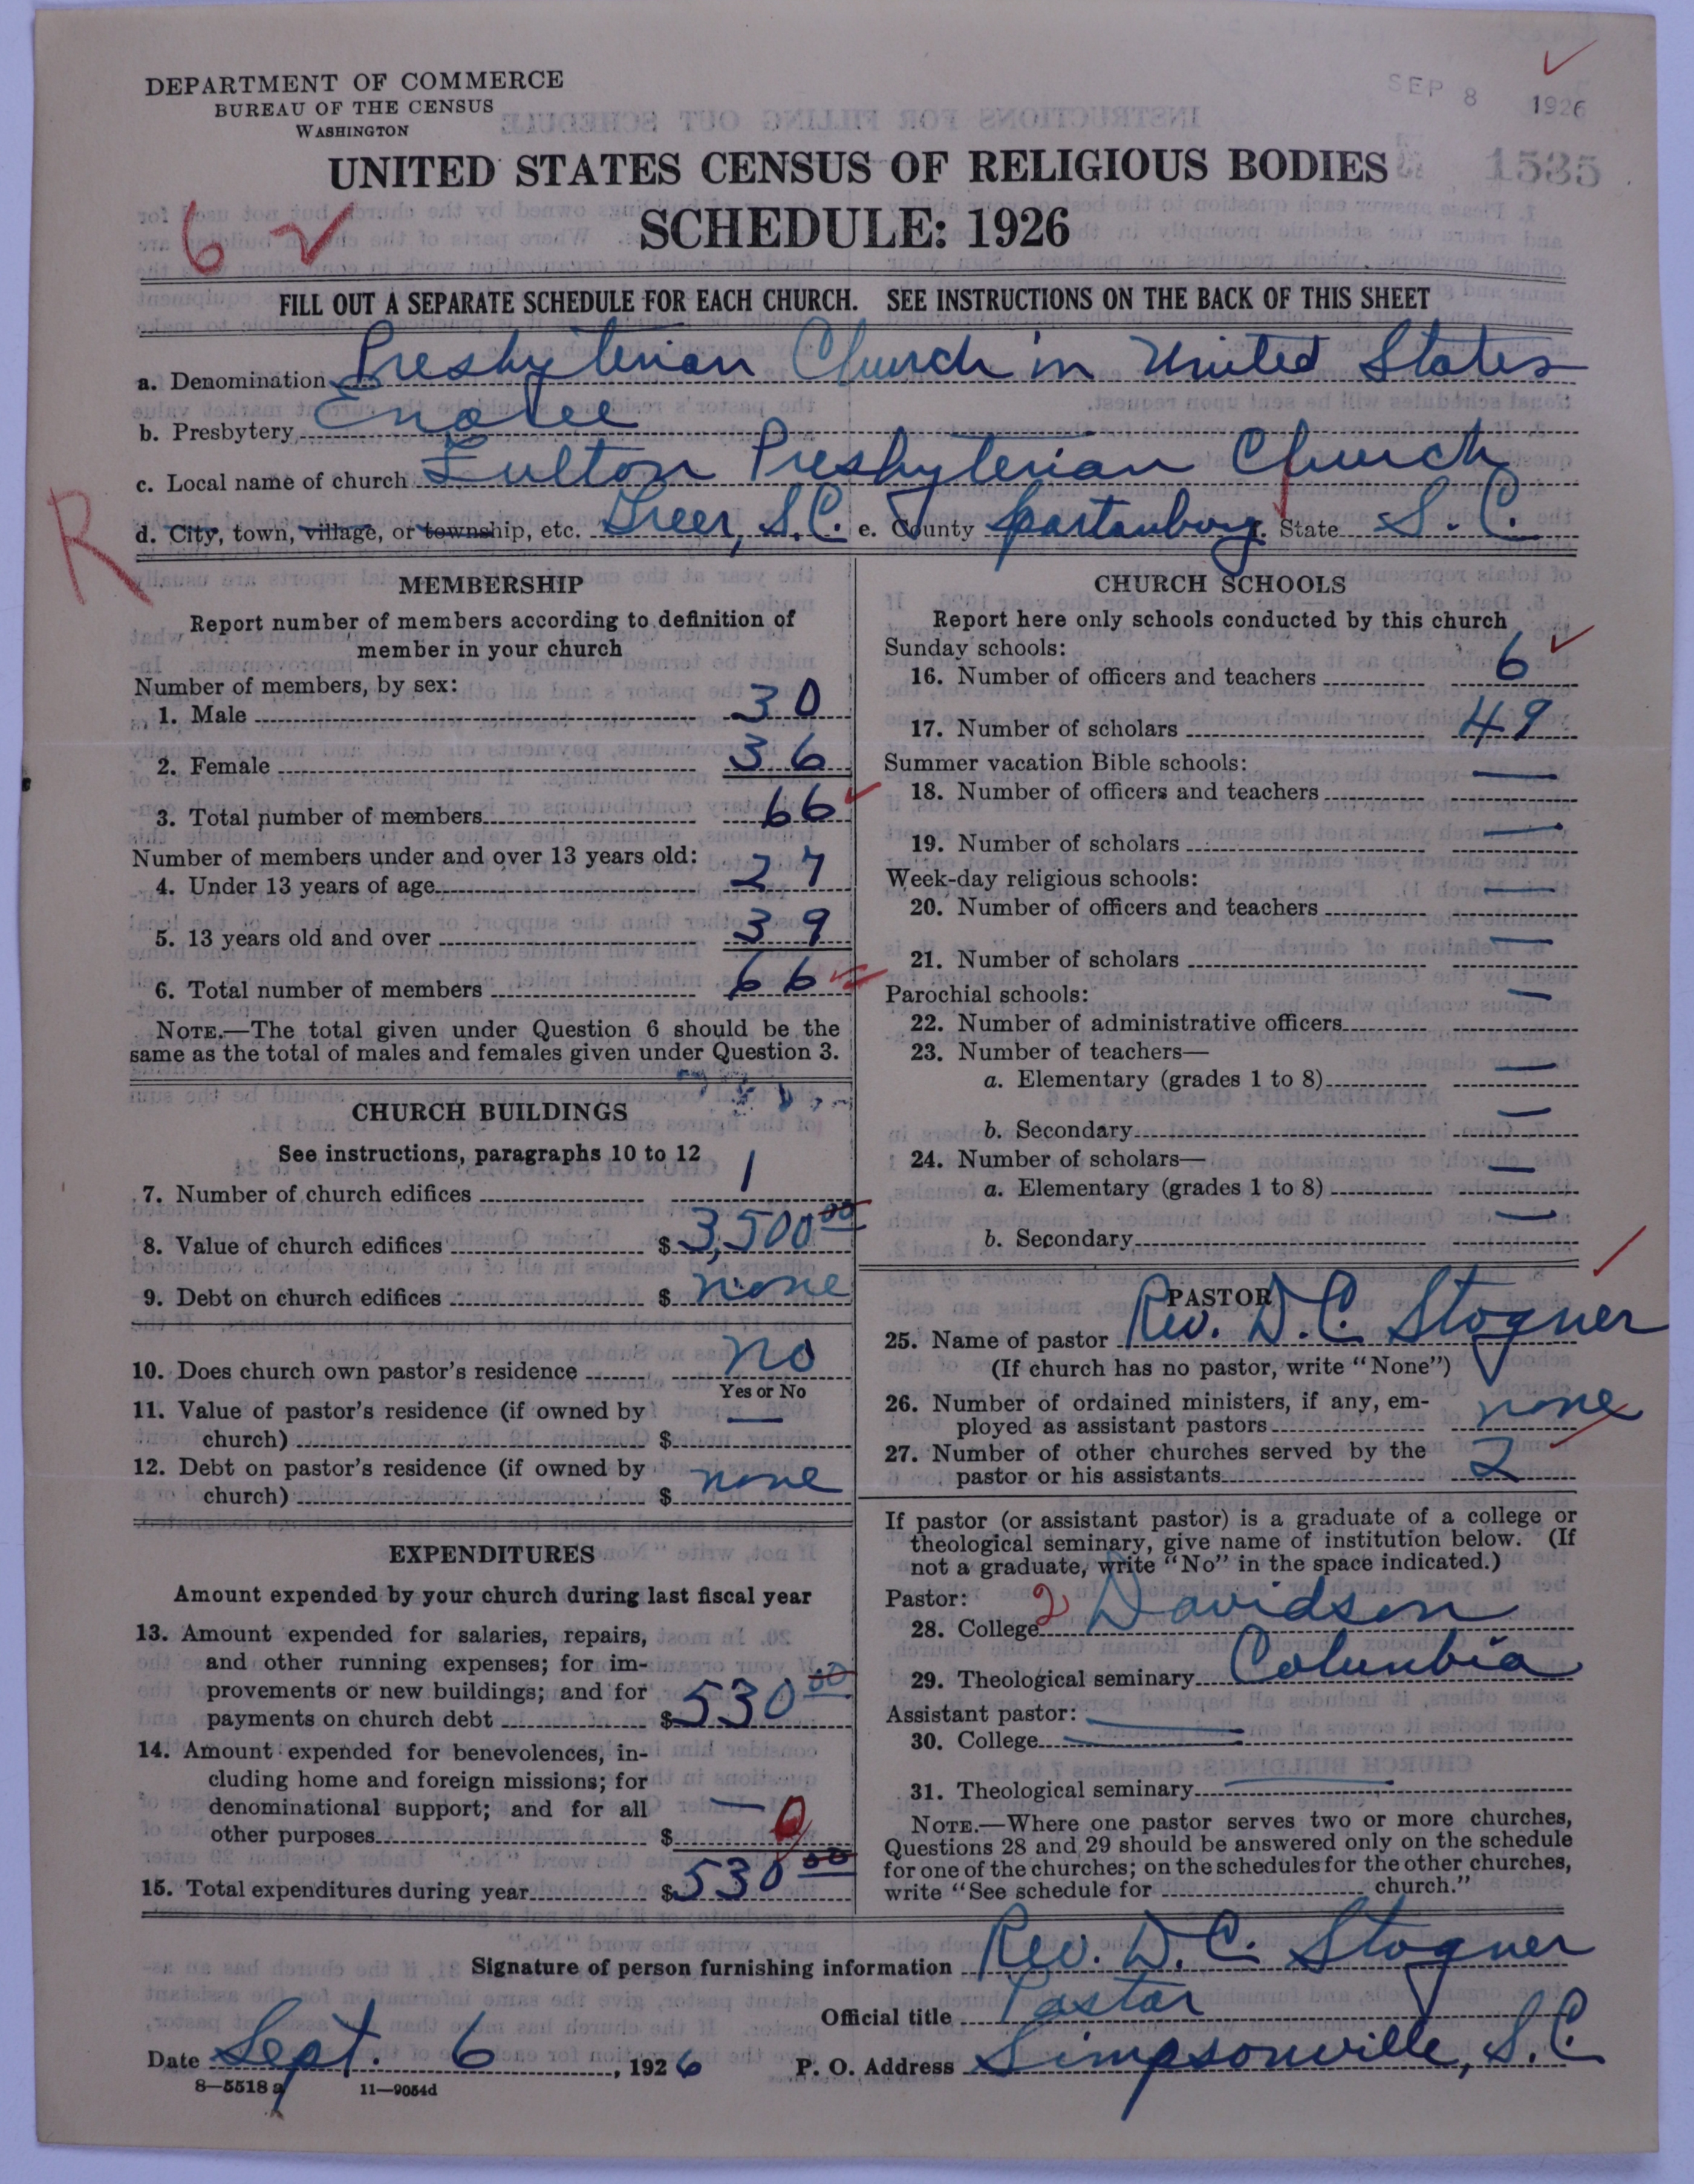 DEPARTMENT OF COMMERCE
BUREAU OF THE CENSUS
WASHINGTON
SEP 8 1926
1535
UNITED STATES CENSUS OF RELIGIOUS BODIES
SCHEDULE: 1926
6
FILL OUT A SEPARATE SCHEDULE FOR EACH CHURCH. SEE INSTRUCTIONS ON THE BACK OF THIS SHEET
a. Denomination Presbyterian Church in United States
b. Presbytery Enoree
c. Local name of church Fulton Presbyterian Church
R
d. City, town, village, or township, etc. Greer, S.C. e. County Spartanburg f. State S. C.
MEMBERSHIP
Report number of members according to definition of
member in your church
Number of members, by sex:
1. Male 30
2. Female 36
3. Total number of members 66
Number of members under and over 13 years old:
4. Under 13 years of age 27
5. 13 years old and over 39
6. Total number of members 66
NOTE.—The total given under Question 6 should be the
same as the total of males and females given under Question 3.
CHURCH BUILDINGS
See instructions, paragraphs 10 to 12
7. Number of church edifices 1
8. Value of church edifices $ 3,500 00
9. Debt on church edifices $ none
10. Does church own pastor's residence no
Yes or No
11. Value of pastor's residence (if owned by
church) $ —
12. Debt on pastor's residence (if owned by
church) $ none
EXPENDITURES
Amount expended by your church during last fiscal year
13. Amount expended for salaries, repairs,
and other running expenses; for im-
provements or new buildings; and for
payments on church debt $ 530 00
14. Amount expended for benevolences, in-
cluding home and foreign missions; for
denominational support; and for all
other purposes $ — 0
15. Total expenditures during year $ 530 00
CHURCH SCHOOLS
Report here only schools conducted by this church
Sunday schools:
16. Number of officers and teachers 6
17. Number of scholars 49
Summer vacation Bible schools:
18. Number of officers and teachers —
19. Number of scholars —
Week-day religious schools:
20. Number of officers and teachers —
21. Number of scholars —
Parochial schools:
22. Number of administrative officers —
23. Number of teachers—
a. Elementary (grades 1 to 8) —
b. Secondary —
24. Number of scholars—
a. Elementary (grades 1 to 8) —
b. Secondary —
PASTOR
25. Name of pastor Rev. D.C. Stogner
(If church has no pastor, write "None")
26. Number of ordained ministers, if any, em-
ployed as assistant pastors none
27. Number of other churches served by the
pastor or his assistants 2
If pastor (or assistant pastor) is a graduate of a college or
theological seminary, give name of institution below. (If
not a graduate, write "No" in the space indicated.)
Pastor:
28. College 2 Davidson
29. Theological seminary Columbia
Assistant pastor:
30. College —
31. Theological seminary —
NOTE.—Where one pastor serves two or more churches,
Questions 28 and 29 should be answered only on the schedule
for one of the churches; on the schedules for the other churches,
write "See schedule for church."
Signature of person furnishing information Rev. D. C. Stogner
Official title Pastor
Date Sept. 6, 1926 P. O. Address Simpsonville, S.C.
8—5518 a 11—9054d